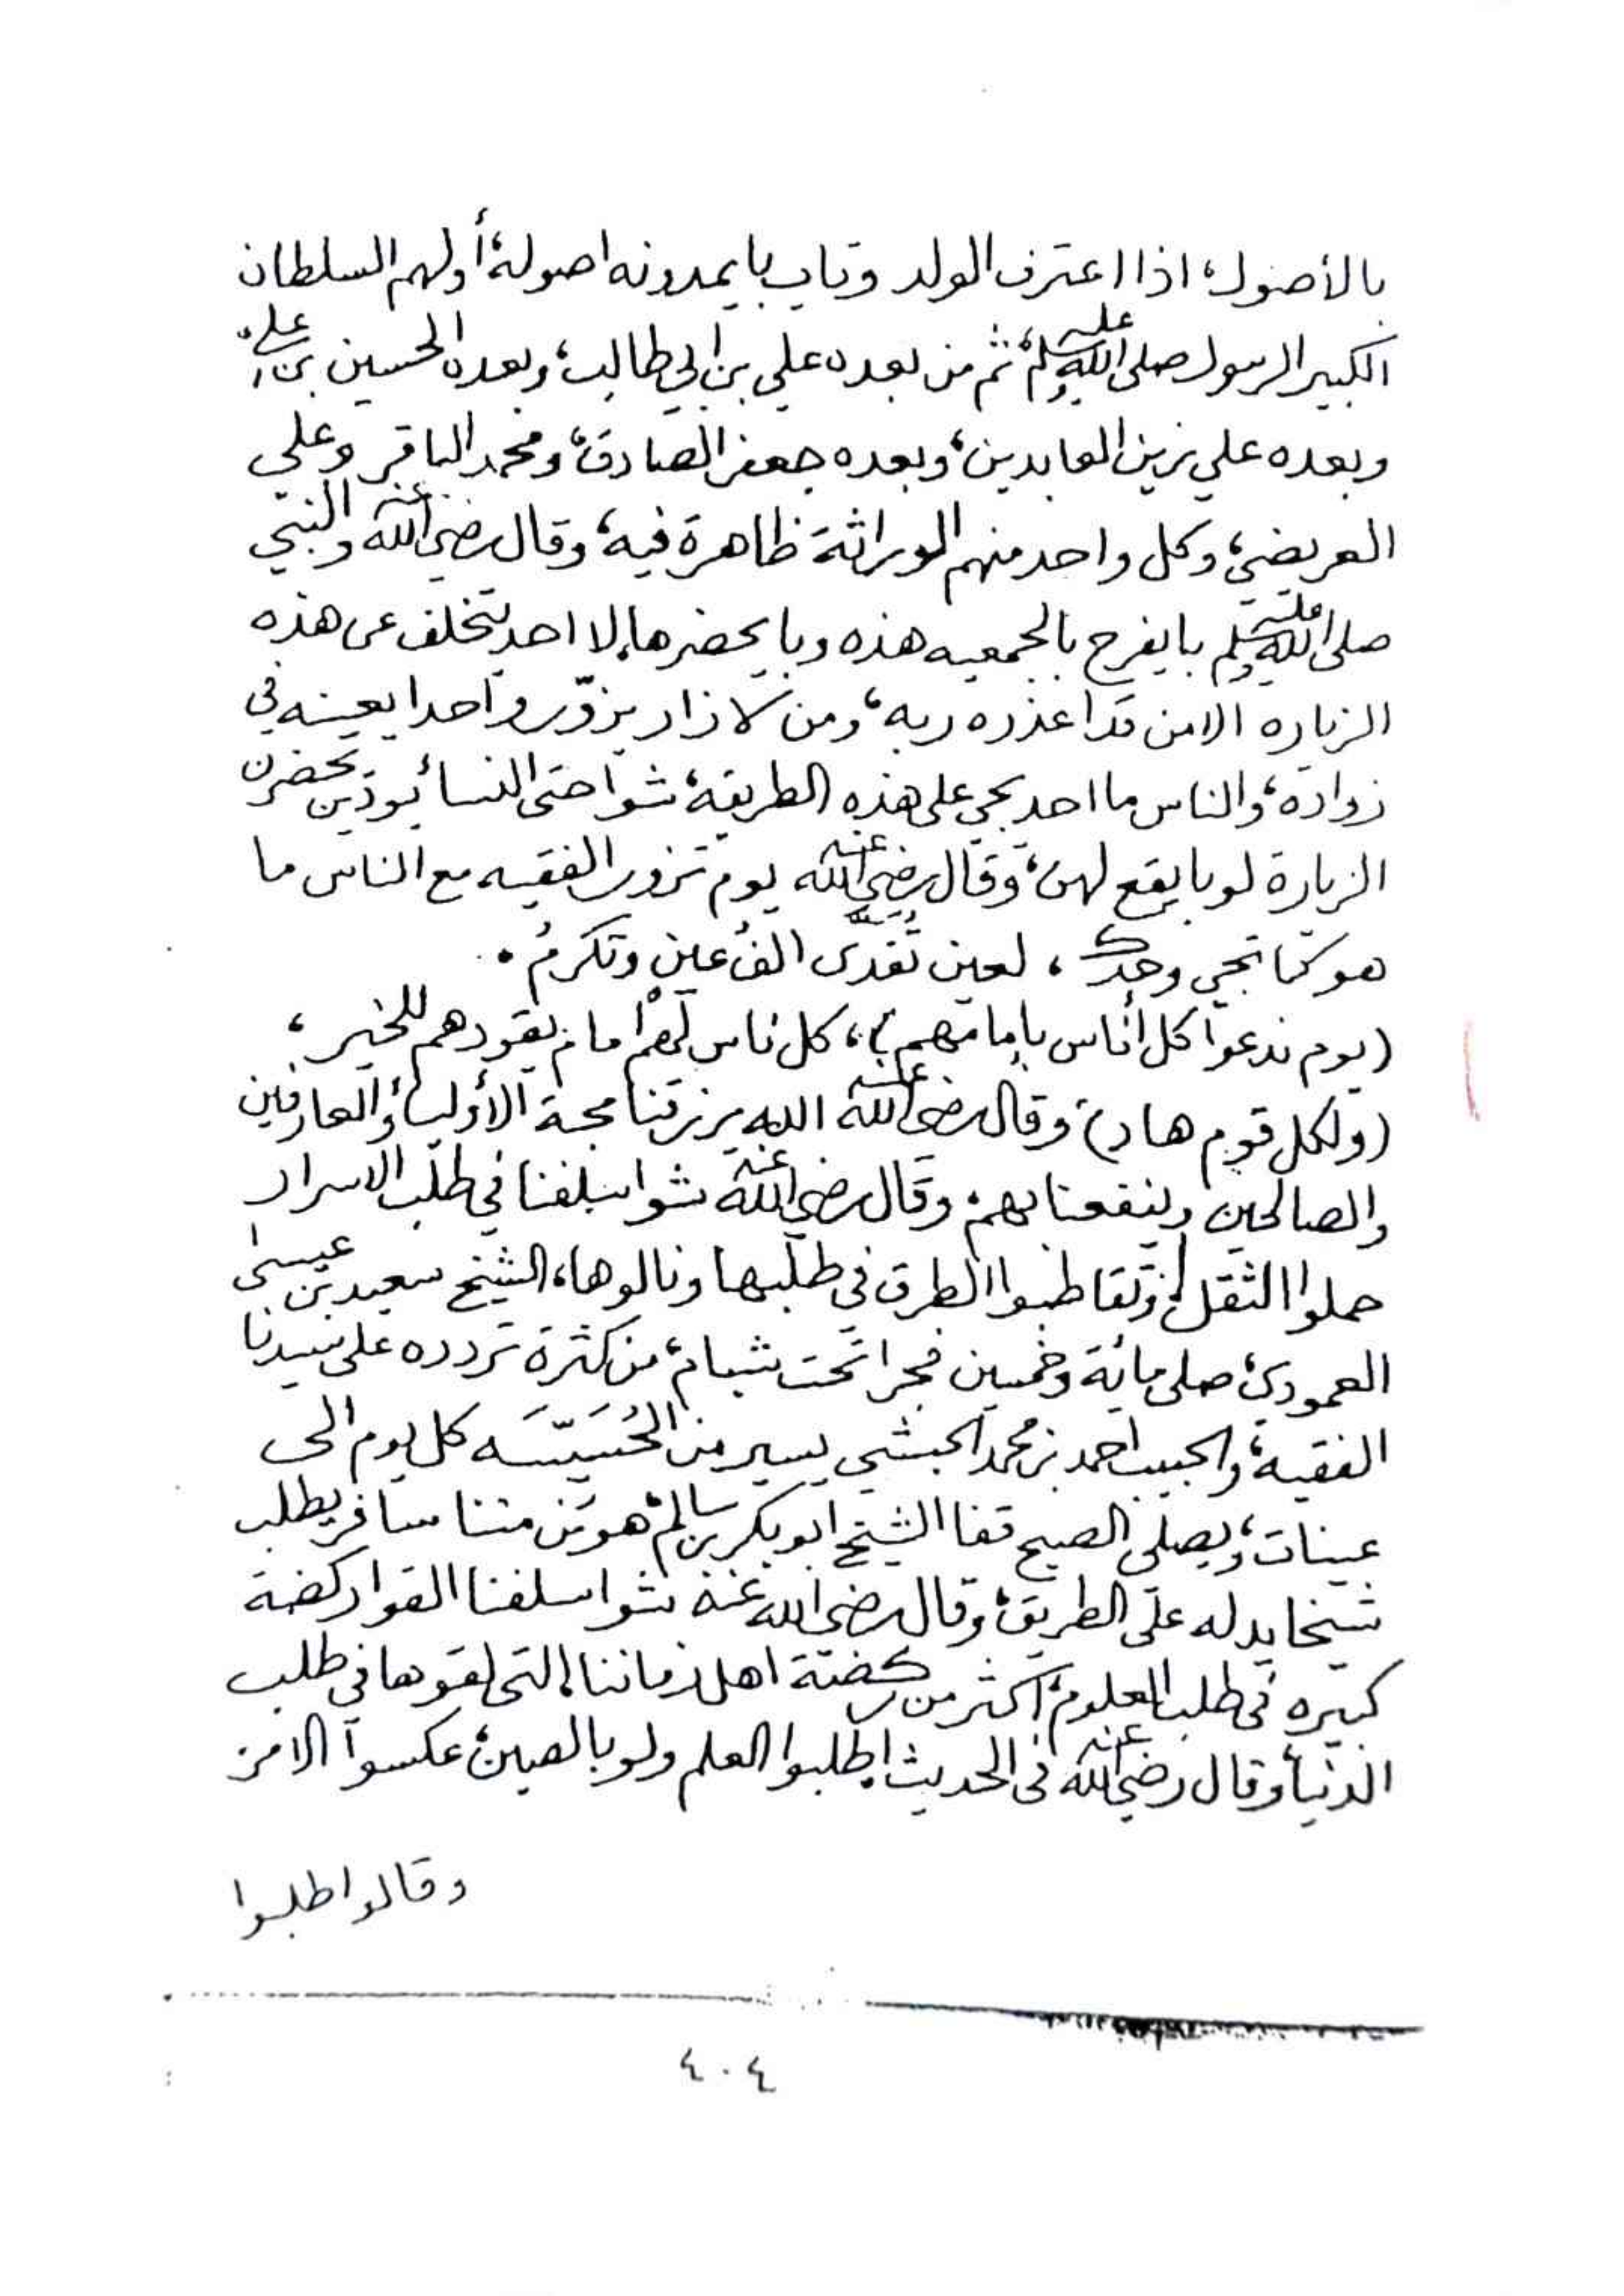 بالأصول، اذا اعترف الولد وتاب بايمدونه اصوله، أولهم السلطان
الكبير الرسول صلى الله عليه وسلم، ثم من بعده علي بن ابي طالب، وبعده الحسين بن علي،
وبعده علي زين العابدين، وبعده جعفر الصادق، ومحمد الباقر وعلي
العريضي، وكل واحد منهم الوراثة ظاهرة فيه، وقال رضي الله عنه والنبي
صلى الله عليه وسلم بايفرح بالجمعيه هذه وبايحضرها، لا احد يتخلف عن هذه
الزياره الا من قد اعذره ربه، ومن لا زار يزوّر واحدا يعينه في
زواره، والناس ما احد يجي على هذه الطريقة، شوا حتى النسأ يودّين يحضرن
الزيارة لو بايقع لهن، وقال رضي الله عنه يوم تزور الفقيه مع الناس ما
هو كما تجي وحدك، لعين تُفَدَّى الفُ عينٍ وتكرمُ.
(يوم ندعوا كل أناس بإمامهم)، كل ناس لهم امام يقودهم للخير،
(ولكل قوم هاد) وقال رضي الله عنه الله يرزقنا محبة الأوليأ والعارفين
والصالحين وينفعنا بهم، وقال رضي الله عنه شوا سلفنا في طلب الاسرار
حملوا الثقل، وتقاطبوا الطرق في طلبها ونالوها، الشيخ سعيد بن عيسى
العمودي، صلى مائة وخمسين فجرا تحت شبام، من كثرة تردده على سيدنا
الفقيه، والحبيب احمد بن محمد الحبشي يسير من الحُسَيّسَه كل يوم الى
عينات، ويصلي الصبح قفا الشيخ ابوبكر بن سالم، هو من مننا سافر يطلب
شيخا يدله على الطريق، وقال رضي الله عنه شوا سلفنا القوا ركضة
كبيره في طلب العلوم، اكثر من ركضة اهل زماننا، التي لقوها في طلب
الدنيا، وقال رضي الله عنه في الحديث اطلبوا العلم ولو بالصين، عكسوا الامر
وقالوا طلبوا
٤٠٤